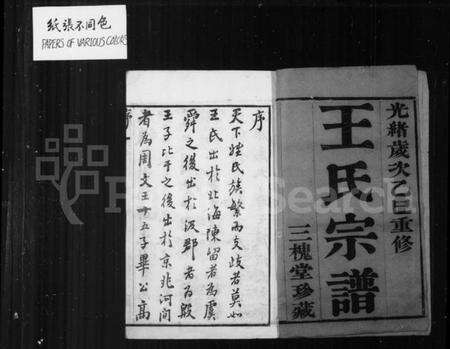 紙張不同色
PAPERS OF VARIOUS COLORS
光緒歲次乙巳重修
王氏宗譜
三槐堂珍藏
序
天下姓氏族繁而支歧者莫如
王氏出於北海陳留者為虞
舜之後出於汲郡者為殷
王子比干之後出於京兆河間
者為周文王十五子畢公高